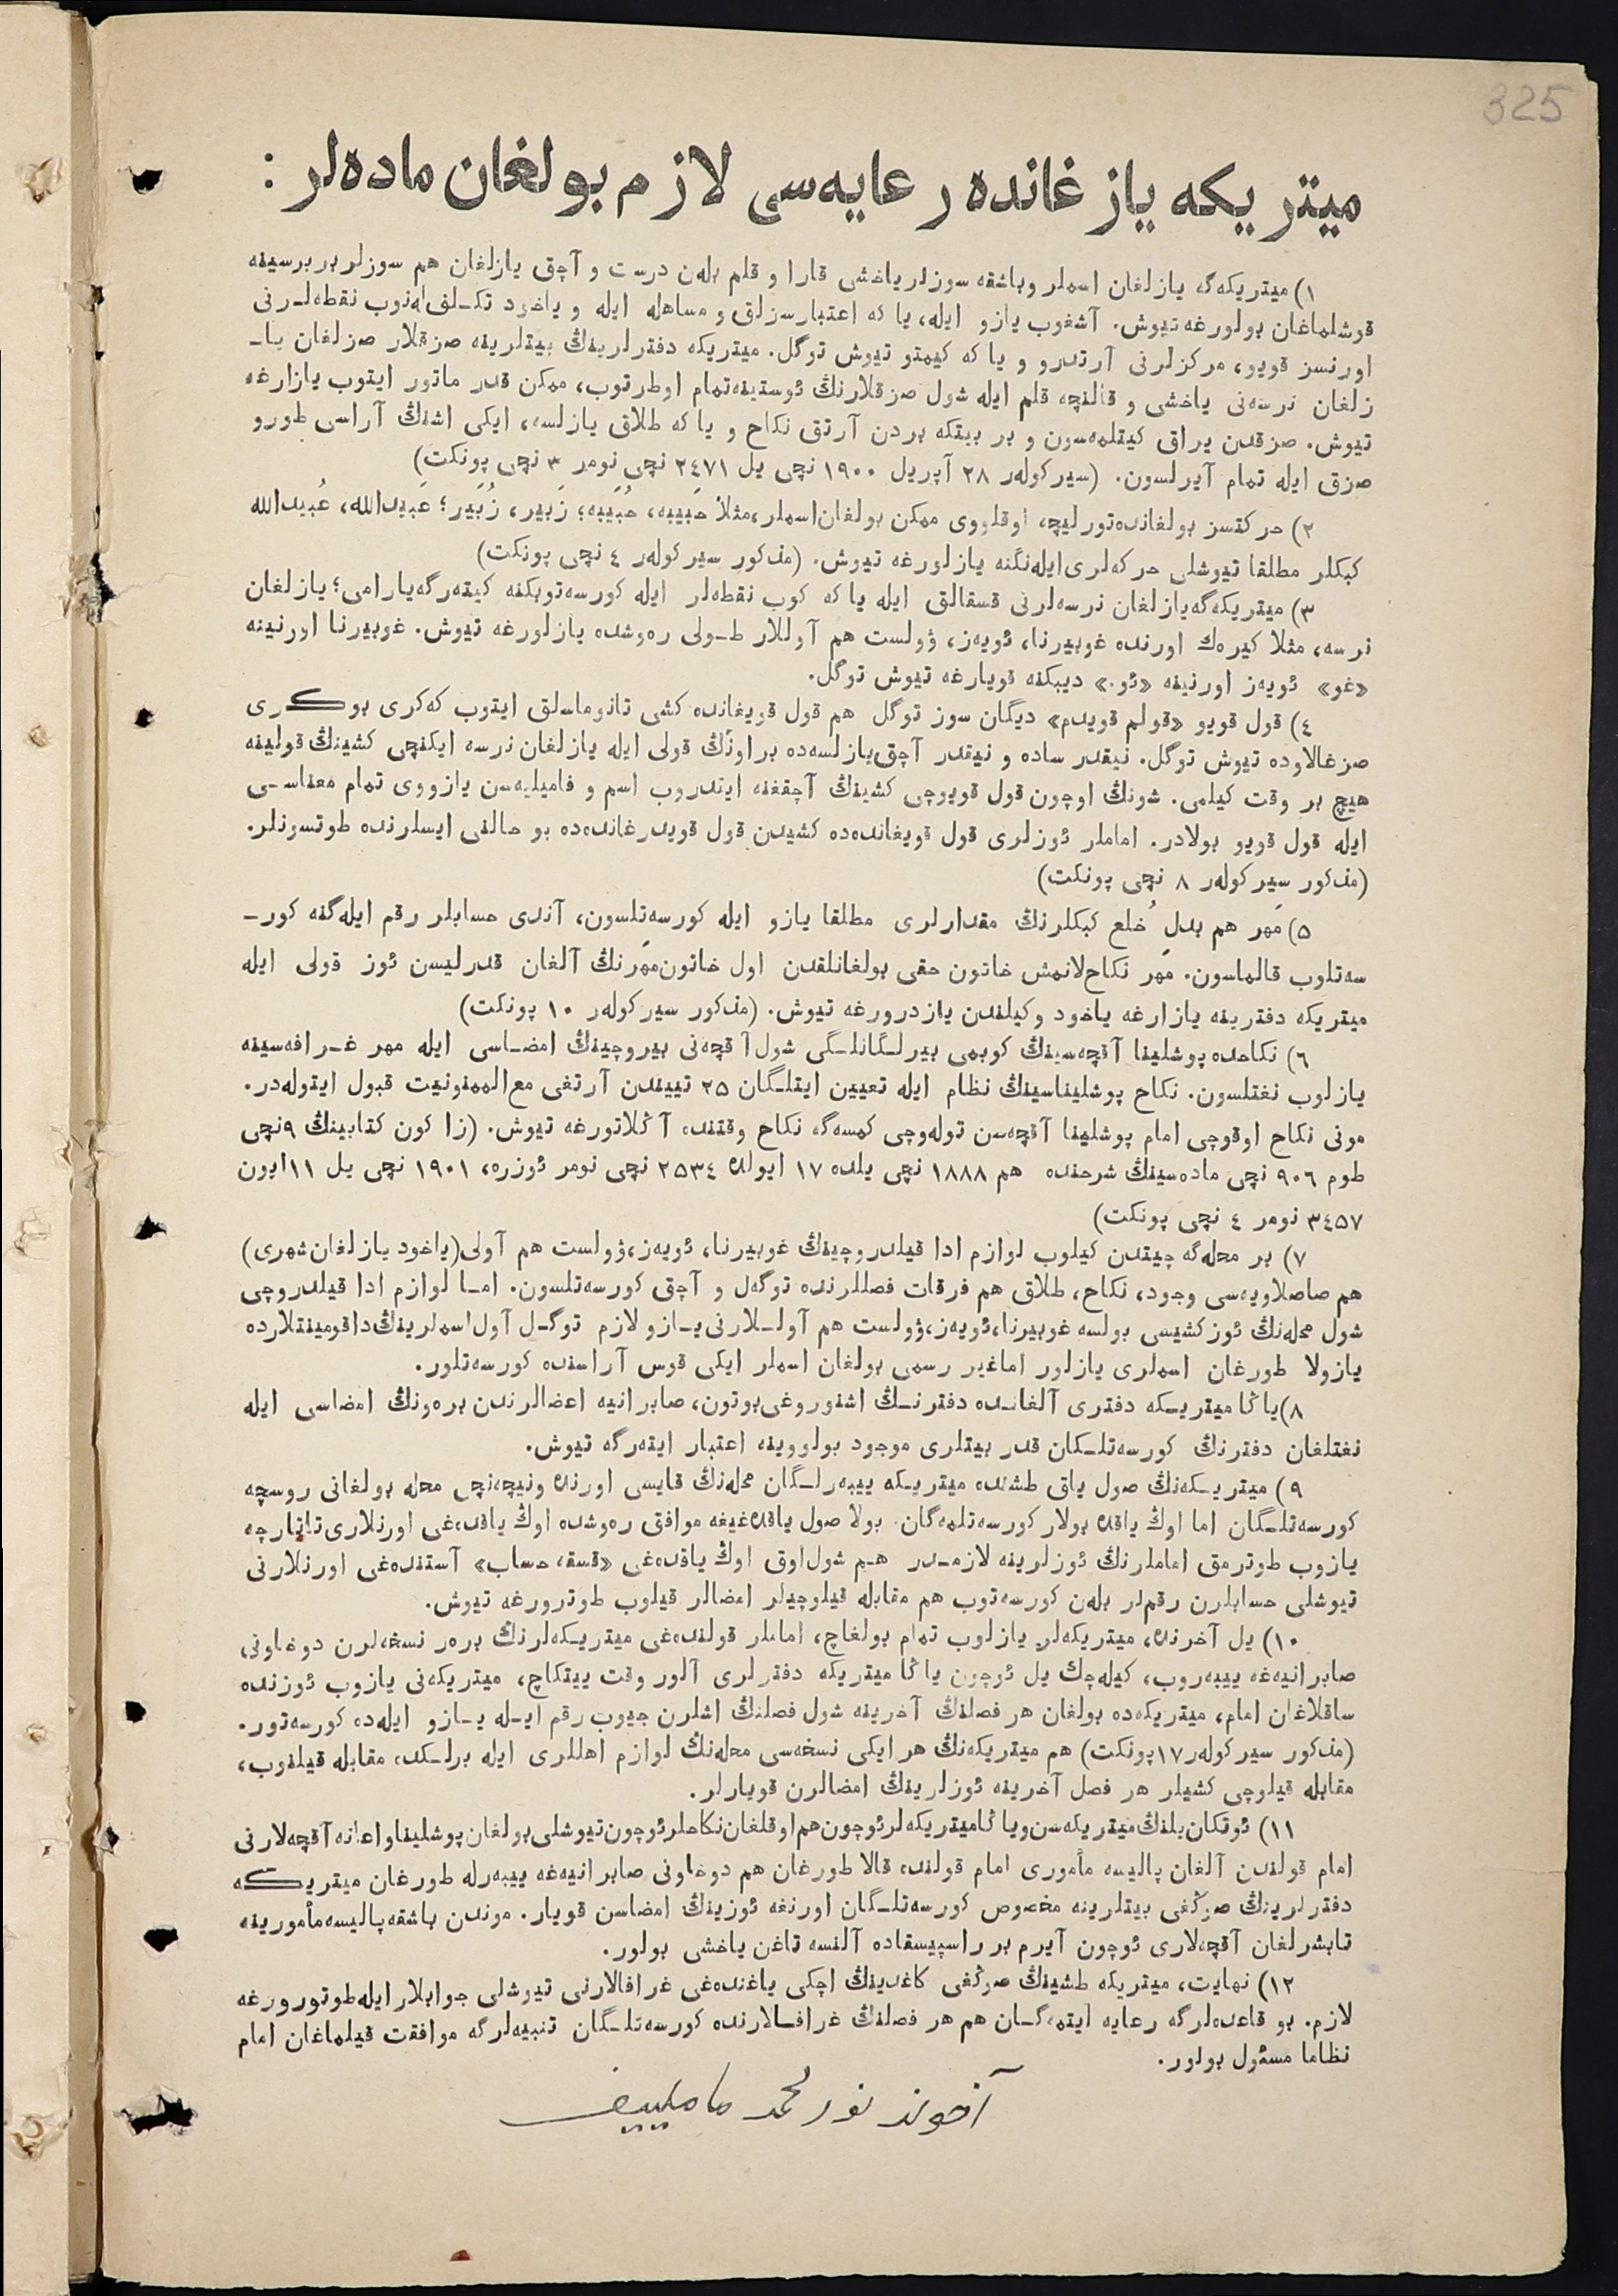 325
میتریکه یازغانده رعایه‌سی لازم بولغان ماده‌لر :
۱) میتریکه‌گه یازلغان اسملر وباشقه سوزلر یاخشی قارا و قلم بله‌ن درست و آچق یازلغان هم سوزلر بر برسینه
قوشلماغان بولورغه تیوش. آشغوب یازو ایله، یا که اعتبارسزلق و مساهله ایله و یاخود تکـلف‌له‌نوب نقطه‌لـرنی
اورنسز قویو، مرکزلرنی آرتدرو و یا که کیمتو تیوش توگل. میتریکه دفترلرینڭ بیتلرینه صزقلار صزلغان یا-
زلغان نرسه‌نی یاخشی و قالنچه قلم ایله شول صزقلارنڭ ئوستینه تمام اوطرتوب، ممکن قدر ماتور ایتوب یازارغه
تیوش. صزقدن یراق کیتلمه‌سون و بر بیتکه بردن آرتق نکاح و یا که طلاق یازلسه، ایکی اشنڭ آراسی طورو
صزق ایله تمام آیرلسون. (سیرکولەر ۲۸ آپریل ۱۹۰۰ نچی یل ۲٤۷۱ نچی نومر ۳ نچی پونکت)
۲) حرکتسز بولغانده تورلیچه اوقلووی ممکن بولغان اسملر، مثلا حَبیبه، حُبَیبه؛ زَبیر، زُبَیر؛ عَبیدالله، عُبیدالله
کبکلر مطلقا تیوشلی حرکه‌لری ایله‌نگنه یازلورغه تیوش. (مذکور سیرکولەر ٤ نچی پونکت)
۳) میتریکه‌گه یازلغان نرسه‌لرنی قسقالق ایله یا که کوب نقطه‌لر ایله کورسه‌توبکنه کیته‌رگه یارامی؛ یازلغان
نرسه، مثلا کیره‌ك اورنده غوبیرنا، ئویه‌ز، ۋولست هم آوللار طـولی ره‌وشده یازلورغه تیوش. غوبیرنا اورنینه
«غو» ئویه‌ز اورنینه «ئو.» دیبکنه قویارغه تیوش توگل.
٤) قول قویو «قولم قویدم» دیگان سوز توگل هم قول قویغانده کشی تانوماسلق ایتوب که‌کری بوکری
صزغالاوده تیوش توگل. نیقدر ساده و نیقدر آچق یازلسه‌ده براونڭ قولی ایله یازلغان نرسه ایکنچی کشینڭ قولینه
هیچ بر وقت کیلمی. شونڭ اوچون قول قویوچی کشینڭ آچقغنه ایتدروب اسم و فامیلیه‌سن یازووی تمام معناسـی
ایله قول قویو بولادر. اماملر ئوزلری قول قویغانده‌ده کشیدن قول قویدرغانده‌ده بو حالنی ایسلرنده طوتسونلر.
(مذکور سیرکولەر ۸ نچی پونکت)
۵) مَهر هم بدلِ خُلع کبکلرنڭ مقدارلری مطلقا یازو ایله کورسه‌تلسون، آندی حسابلر رقم ایله‌گنه کور-
سه‌تلوب قالماسون. مَهر نکاح‌لانمش خاتون حقی بولغانلقدن اول خاتون مهرنڭ آلغان قدرلیسن ئوز قولی ایله
میتریکه دفترینه یازارغه یاخود وکیلندن یازدرورغه تیوش. (مذکور سیرکولەر ۱۰ پونکت)
٦) نکاحده پوشلینا آقچه‌سینڭ کوبمی بیرلـگانلـگی شول آقچه‌نی بیروچینڭ امضـاسی ایله مهر غـرافه‌سینه
یازلوب نغتلسون. نکاح پوشلیناسینڭ نظام ایله تعیین ایتلـگان ۲۵ تییندن آرتغی مع‌الممنونیت قبول ایتوله‌در.
مونی نکاح اوقوچی امام پوشلینا آقچه‌سن توله‌وچی کمسه‌گه نکاح وقتنده آڭلاتورغه تیوش. (زاکون کتابینڭ ۹نچی
طوم ۹۰٦ نچی ماده‌سینڭ شرحنده هم ۱۸۸۸ نچی یلده ۱۷ ایولده ۲۵۳٤ نچی نومر ئوزره، ۱۹۰۱ نچی یل ۱۱ایون
۳٤۵۷ نومر ٤ نچی پونکت)
۷) بر محله‌گه چیتدن کیلوب لوازم ادا قیلدروچینڭ غوبیرنا، ئویه‌ز، ۋولست هم آولی(یاخود یازلغان شهری)
هم صاصلاویه‌سی وجود، نکاح، طلاق هم فرقات فصللرنده توگه‌ل و آچق کورسه‌تلسون. امـا لوازم ادا قیلدروچی
شول محله‌نڭ ئوز کشیسی بولسه غوبیرنا، ئویه‌ز، ۋولست هم آولـلارنی یـازو لازم توگـل آول اسملرینڭ داقومینتلارده
یازولا طورغان اسملری یازلور اما غیر رسمی بولغان اسملر ایکی قوس آراسنده کورسه‌تلور.
۸) یاڭا میتریـکه دفتری آلغانـده دفترنـڭ اشنوروغی بوتون، صابرانیه اعضالرندن بره‌ونڭ امضاسی ایله
نغتلغان دفترنڭ کورسه‌تلـکان قدر بیتلری موجود بولووینه اعتبار ایته‌رگه تیوش.
۹) میتریـکه‌نڭ صول یاق طشنده میتریـکه ییبه‌رلـگان محله‌نڭ قایسی اورنده ونیچه‌نچی محله بولغانی روسچه
کورسه‌تلـگان اما اوڭ یاقده بولار کورسه‌تلمه‌گان. بولا صول یاقده‌غیغه موافق ره‌وشده اوڭ یاقده‌غی اورنلاری تاتارچه
یازوب طوترمق اماملرنڭ ئوزلرینه لازمـدر هـم شول اوق اوڭ یاقده‌غی «قسقه حساب» آستنده‌غی اورنلارنی
تیوشلی حسابلرن رقم‌لر بله‌ن کورسه‌توب هم مقابله قیلوچیلر امضالر قیلوب طوترورغه تیوش.
۱۰) یل آخرنده، میتریکه‌لر یازلوب تمام بولغاچ، اماملر قولنده‌غی میتریـکه‌لرنڭ بره‌ر نسخه‌لرن دوخاونی
صابرانیه‌غه ییبه‌روب، کیله‌چك یل ئوچون یاڭا میتریکه دفترلری آلور وقت ییتکاچ، میتریکه‌نی یازوب ئوزنده
ساقلاغان امام، میتریکه‌ده بولغان هر فصلنڭ آخرینه شول فصلنڭ اشلرن جیوب رقم ایـله یـازو ایله‌ده کورسه‌تور.
(مذکور سیرکولەر ۱۷پونکت) هم میتریکه‌نڭ هر ایکی نسخه‌سی محله‌نڭ لوازم اهللری ایله برلـکده مقابله قیلنوب،
مقابله قیلوچی کشیلر هر فصل آخرینه ئوزلرینڭ امضالرن قویارلر.
۱۱) ئوتکان یلنڭ میتریکه‌سن ویاڭا میتریکه‌لر ئوچون هم اوقلغان نکاحلر ئوچون تیوشلی بولغان پوشلینا واعانه آقچه‌لارنی
امام قولندن آلغان پالیسه مأموری امام قولنده قالا طورغان هم دوخاونی صابرانیه‌غه ییبه‌رله طورغان میتریکه
دفترلرینڭ صوڭغی بیتلرینه مخصوص کورسه‌تلـگان اورنغه ئوزینڭ امضاسن قویار. موندن باشقه پالیسه مأمورینه
تابشرلغان آقچه‌لاری ئوچون آیرم بر راسپیسقاده آلنسه تاغن یاخشی بولور.
۱۲) نهایت، میتریکه طشینڭ صوڭغی کاغدینڭ اچکی یاغنده‌غی غرافالارنی تیوشلی جوابلار ایله طوتورورغه
لازم. بو قاعده‌لرگه رعایه ایتمه‌گـان هم هر فصلنڭ غرافـالارنده کورسه‌تلـگان تنبیه‌لرگه موافقت قیلماغان امام
نظاما مسئول بولور.
آخوند نور محمد مامليیف